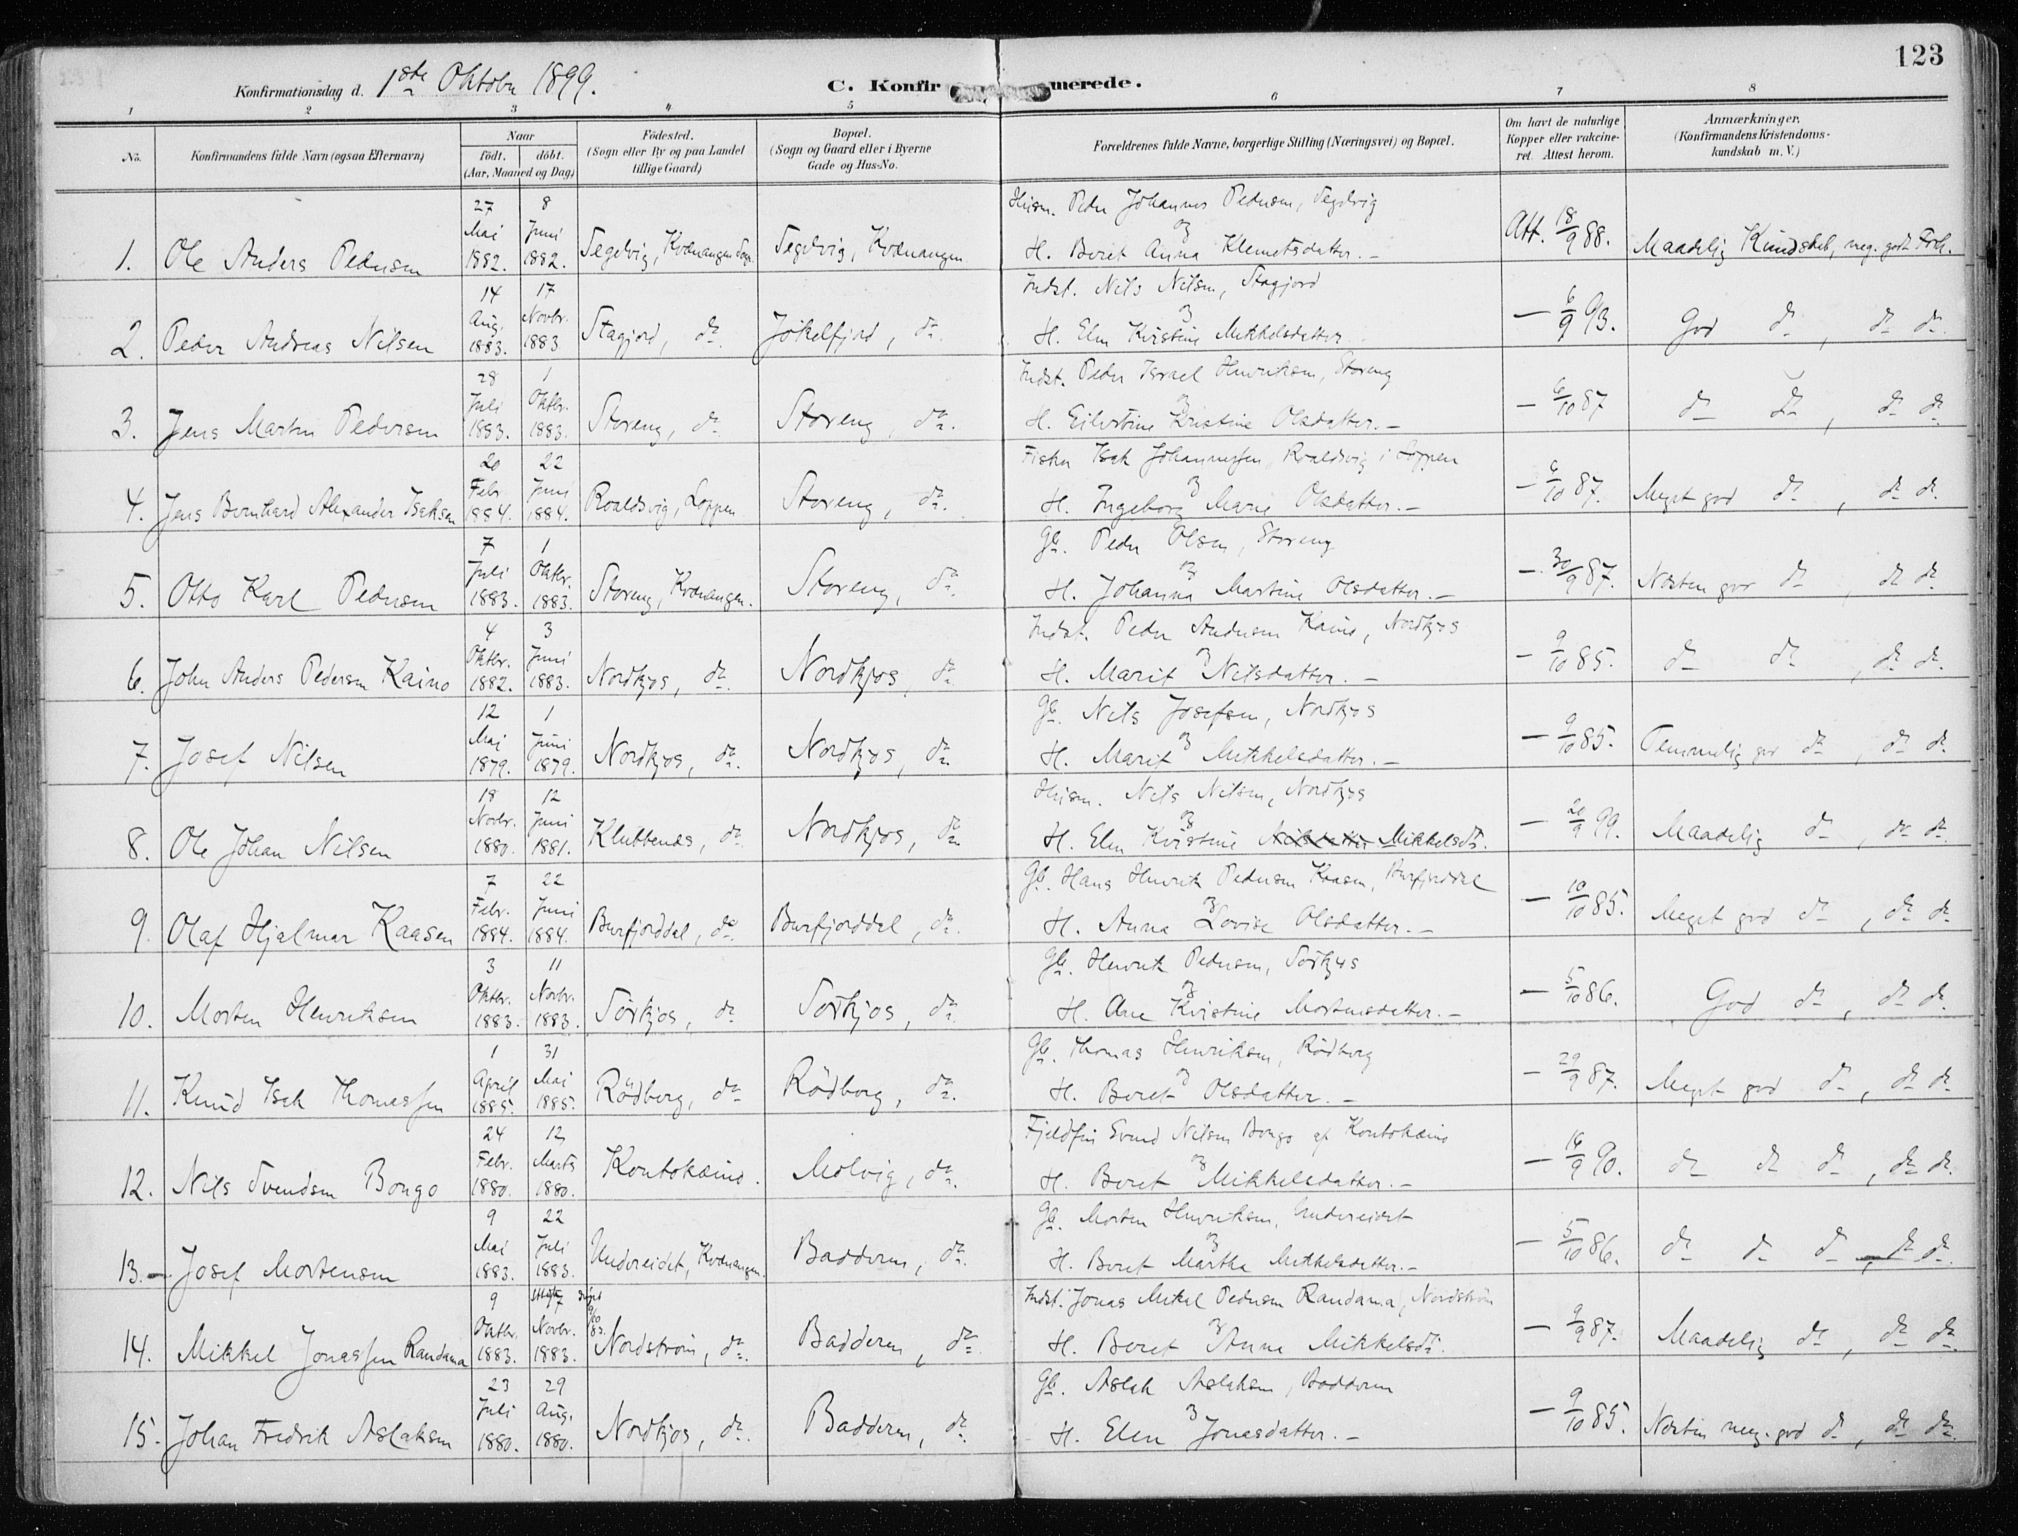 123
Konfirmationsdag d. 1ste Oktober 1899. C. Konfir merede.
1 2 3 4 5 6 7 8
No. Konfirmandens fulde Navn (ogsaa Efternavn) Naar født. døbt. (Aar, Maaned og Dag) Fødested. (Sogn eller By og paa Landet tillige Gaard) Bopæl. (Sogn og Gaard eller i Byerne Gade og Hus-No. Forældrenes fulde Navne, borgerlige Stilling (Næringsvei) og Bopæl. Om havt de naturlige Kopper eller vakcineret. Attest herom. Anmærkninger. (Konfirmandens Kristendomskundskab m. V.)
Husm. Peder Johannes Pedersen, Segelvig
1. Ole Anders Pedersen 27 Mai 1882. 8 Juni 1882. Segelvig, Kvænangen Sogn Segelvig, Kvænangen & H. Beret Anna Klemetsdatter.- Att. 18/9 88. Maadelig Kundskab, meg. godt Forh.
Indst. Nils Nilsen, Stagjord
2. Peder Andreas Nilsen 14 Aug. 1883. 17 Novbr. 1883 Stagjord, do. Jøkelfjord, do. & H. Elen Kristine Mikkelsdatter. - 6/9 93. God do, do do.
Indst. Peder Israel Henriksen, Storeng
3. Jens Martin Pedersen 28 Juli 1883. 1 Oktbr. 1883. Storeng, do Storeng, do. & H. Eilertine Kristine Olsdatter.- - 6/10 87 do do, do do.
Fisker Isak Johannessen, Roaldsvig i Loppen
4. Jens Bernhard Alexander Isaksen 20 Febr. 1884. 22 Juni 1884. Roaldsvig, Loppen Storeng, do. & H. Ingeborg Marie Olsdatter.- - 6/10 87. Meget god do, do do.
Gb. Peder Olsen, Storeng
5. Otto Karl Pedersen 7 Juli 1883. 1 Oktbr. 1883. Storeng, Kvænangen. Storeng, do. & H. Johanna Martine Olsdatter.- - 30/9 87. Næsten god do, do do.
Indst. Peder Andersen Kaino, Nordkjos
6. John Anders Pedersen Kaino 4 Oktbr. 1882. 3 Juni 1883. Nordkjos, do. Nordkjos, do. & H. Marit Nilsdatter.- - 9/10 85. do do, do do.
Gb. Nils Josefsen, Nordkjos
7. Josef Nilsen 12 Mai 1879. 1 Juni 1879. Nordkjos, do. Nordkjos, do. & H. Marit Mikkelsdatter.- - 9/10 85. Temmelig god do, do do.
Husm. Nils Nilsen, Nordkjos
8. Ole Johan Nilsen 18 Novbr. 1880. 12 Juni 1881. Klubbenes, do. Nordkjos, do. & H. Elen Kristine Nilsdatter Mikkelsdt. - 20/9 99. Maadelig do, do do.
Gb. Hans Henrik Pedersen Kaasen, Burfjorddal
9. Olaf Hjalmar Kaasen 7 Febr. 1884. 22 Juni 1884. Burfjorddal, do. Burfjorddal, do. & H. Anna Lovise Olsdatter.- - 10/10 85. Meget god do, do do.
Gb. Henrik Pedersen, Sørkjos
10. Morten Henriksen 3 Oktbr. 1883. 11 Novbr. 1883. Sørkjos, do Sørkjos, do. & H. Ane Kristine Mortensdatter.- - 5/10 86. God do, do do.
Gb. Thomas Henriksen, Rødberg
11. Knud Isak Thomassen 1 April 1885. 31 Mai 1885. Rødberg, do Rødberg, do. & H. Beret Olsdatter.- - 29/9 87. Meget god do, do do.
Fjeldfin Svend Nilsen Bongo af Koutokæino
12. Nils Svendsen Bongo 24 Febr. 1880. 12 Marts 1880. Koutokæino. Molvig, do. & H. Beret Mikkelsdatter.- - 16/9 90. do do do, do do.
Gb. Morten Henriksen, Undereidet
13.- Josef Mortensen 9 Mai 1883. 22 Juli 1883. Undereidet, Kvænangen. Badderen, do. & H. Beret Martha Mikkelsdatter.- - 5/10 86. do do do, do do.
Indst. Jonas Mikal Pedersen Randama, Nordstrøm
14. Mikkel Jonassen Randama 9 Oktbr. 1883. Novbr. 1883. Nordstrøm, do. Badderen, do. & H. Beret Anna Mikkelsdt. - 9/9 87. Maadelig do, do do.
Gb. Aslak Aslaksen, Badderen
15. Johan Fredrik Aslaksen 23 Juli 1880. 29 Aug. 1880. Nordkjos, do. Badderen, do. & H. Elen Jonasdatter.- - 9/10 85. Næsten meg. god do, do do.